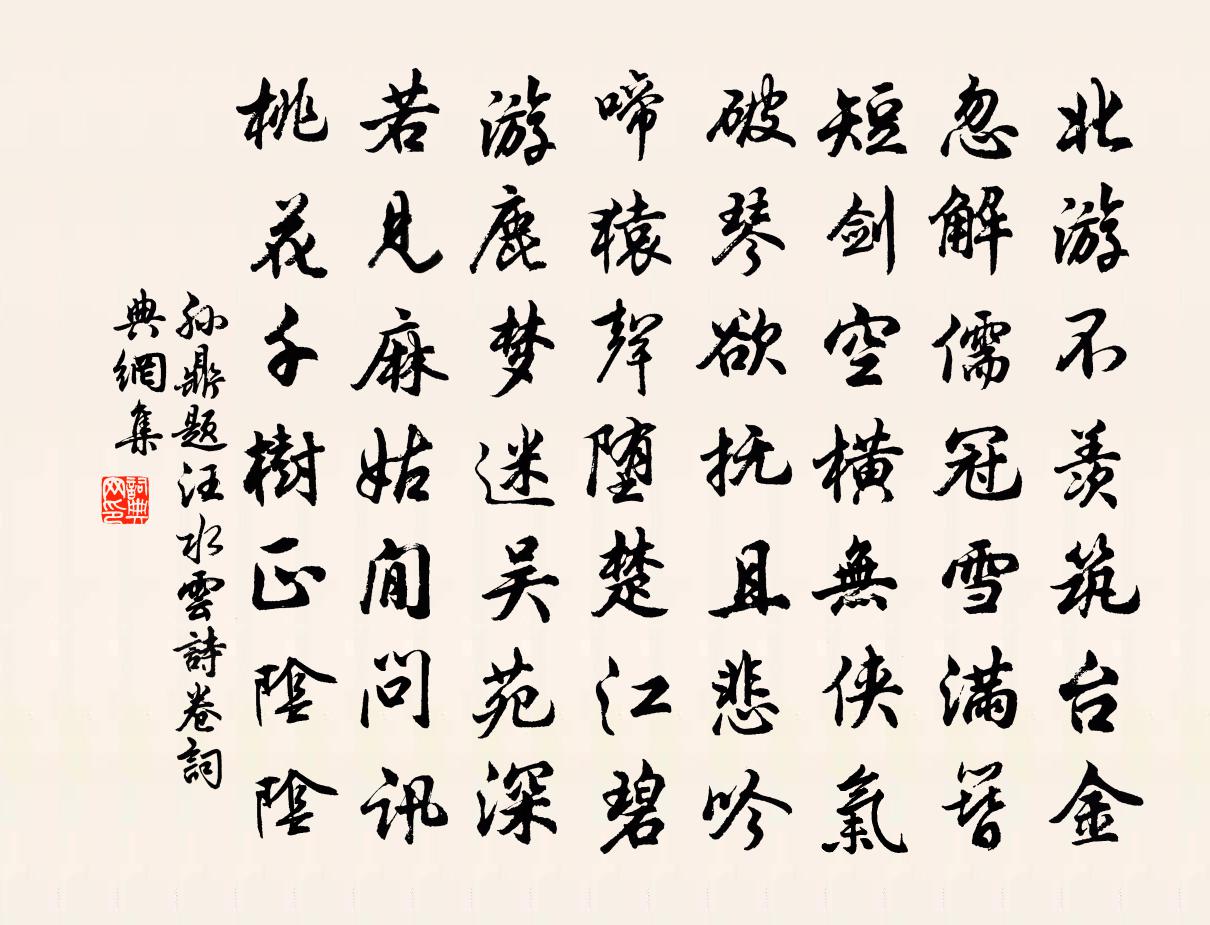 北游不羡筑台金
忽解儒冠雪满簪
短剑空横無侠氣
破琴欲抚且悲吟
啼猿聲堕楚江碧
游鹿梦迷吴苑深
若见麻姑闲问讯
桃花千樹正陰陰
孙鼎题汪水雲詩卷詞
典網集
詞典网印